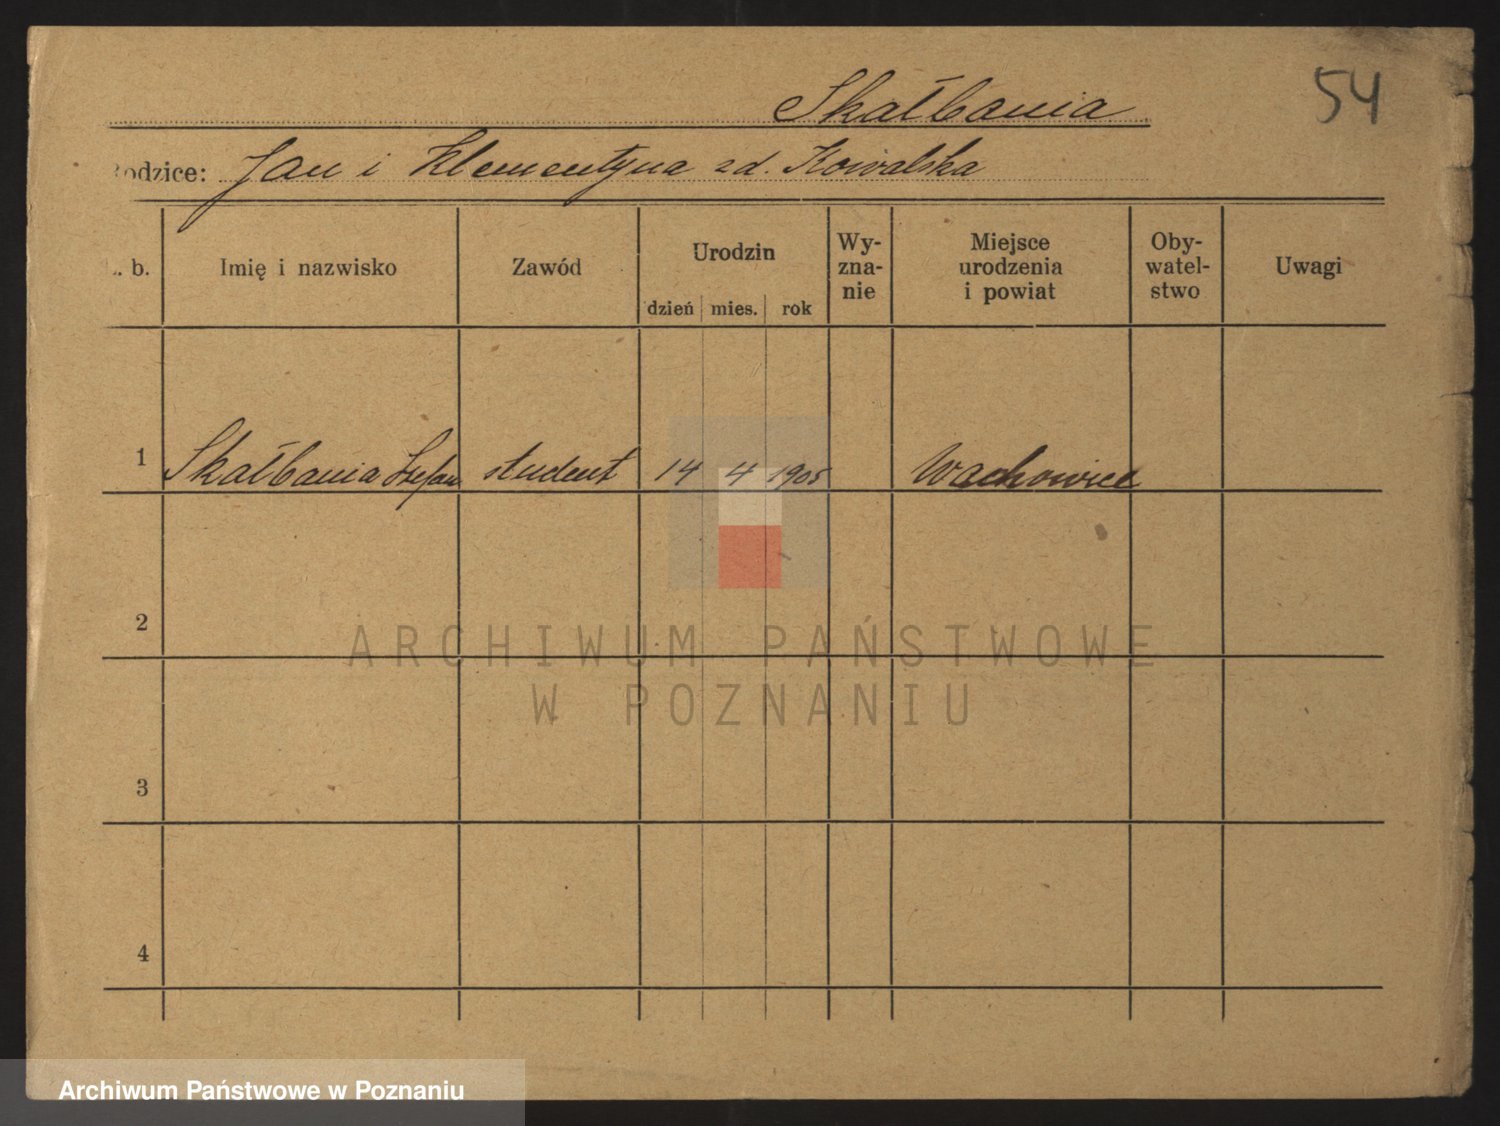 54
Skałbania
Rodzice: Jan i Klementyna zd. Kowalska
L. b. Imię i nazwisko Zawód Urodzin dzień mies. rok Wy-zna-nie Miejsce urodzenia i powiat Oby-watel-stwo Uwagi
1 Skałbania Stefan student 14 4 1905 Wachowice
2
3
4
ARCHIWUM PAŃSTWOWE
W POZNANIU
Archiwum Państwowe w Poznaniu